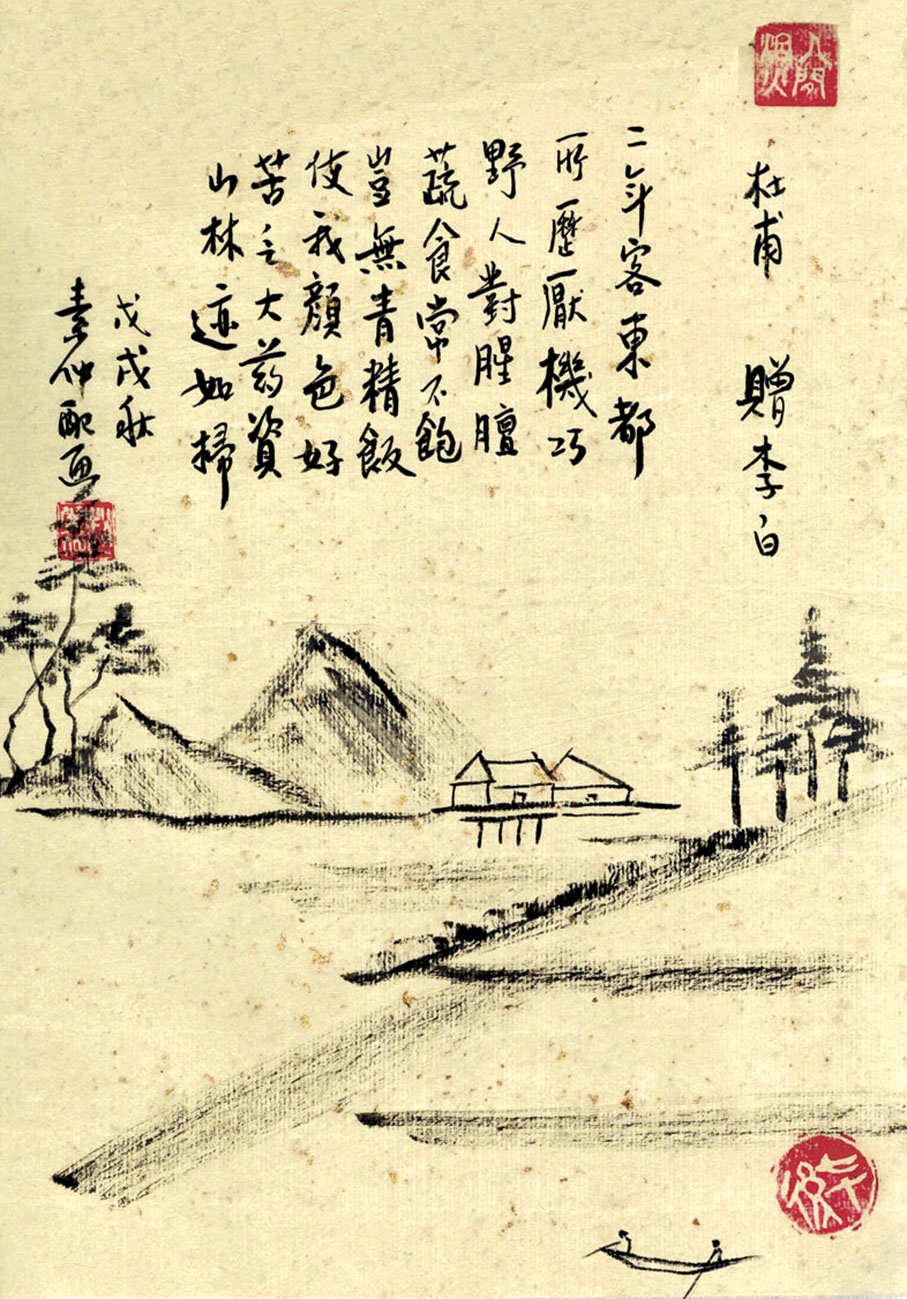 杜甫 贈李白
二年客東都
所歷厭機巧
野人對腥膻
蔬食常不飽
豈無青精飯
使我顏色好
苦乏大药資
山林迹如掃
戊戌秋
素仲配画